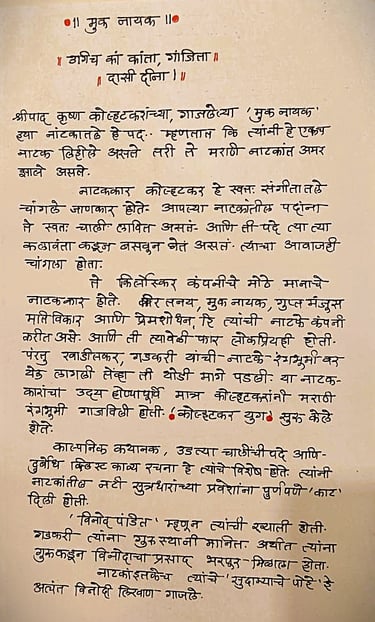 ॥ मुक नायक ॥
॥ उगिच कां कांता, गांजिता
दासी दीना । ॥
श्रीपाद् कृष्ण कोल्हटकरांच्या, गाजलेल्या 'मुक नायक'
ह्या नाटकातले हे पद.. म्हणतात कि त्यांनी हे एकच
नाटक लिहीले असते तरी ते मराठी नाटकांत अमर
झाले असते.
नाटककार कोल्हटकर हे स्वतः संगीतातले
चांगले जाणकार होते. आपल्या नाटकांतील पदांना
ते स्वतः चाली लावित असत. आणि ती पदे त्या त्या
कलावंता कडून बसवून घेत असत. त्याचा आवाजही
चांगला होता.
ते किर्लोस्कर कंपनीचे मोठे मानाचे
नाटककार होते. वीर तनय, मुक नायक, गुप्त मंजुस
मतिविकार आणि प्रेमशोधन, हि त्यांची नाटके कंपनी
करीत असे. आणि ती त्यावेळी फार लोकप्रियही होती.
परंतु खाडीलकर, गडकरी यांची नाटके रंगभुमीवर
येऊ लागली तेव्हा ती थोडी मागे पडली. या नाटक-
कारांचा उदय होण्यापूर्वी मात्र कोल्हटकरांनी मराठी
रंगभूमी गाजविली होती. 'कोल्हटकर युग' सुरू केले
होते.
काल्पनिक कथानक, उडत्या चालींची पदे आणि-
दुर्बोध क्लिस्ट काव्य रचना हे त्यांचे विशेष होते. त्यांनी
नाटकांतील नटी सुत्रधारांच्या प्रवेशांना पुर्णपणे 'काट'
दिली होती.
'विनोद पंडित' म्हणून त्यांची ख्याती होती.
गडकरी त्यांना गुरूस्थानी मानित. अर्थात त्यांना
गुरूकडून विनोदाचा प्रसाद भरपूर मिळाला होता.
नाटकांइतकेच त्यांचे 'सुदाम्याचे पोहे' हे
अत्यंत विनोदी लिखाण गाजले.